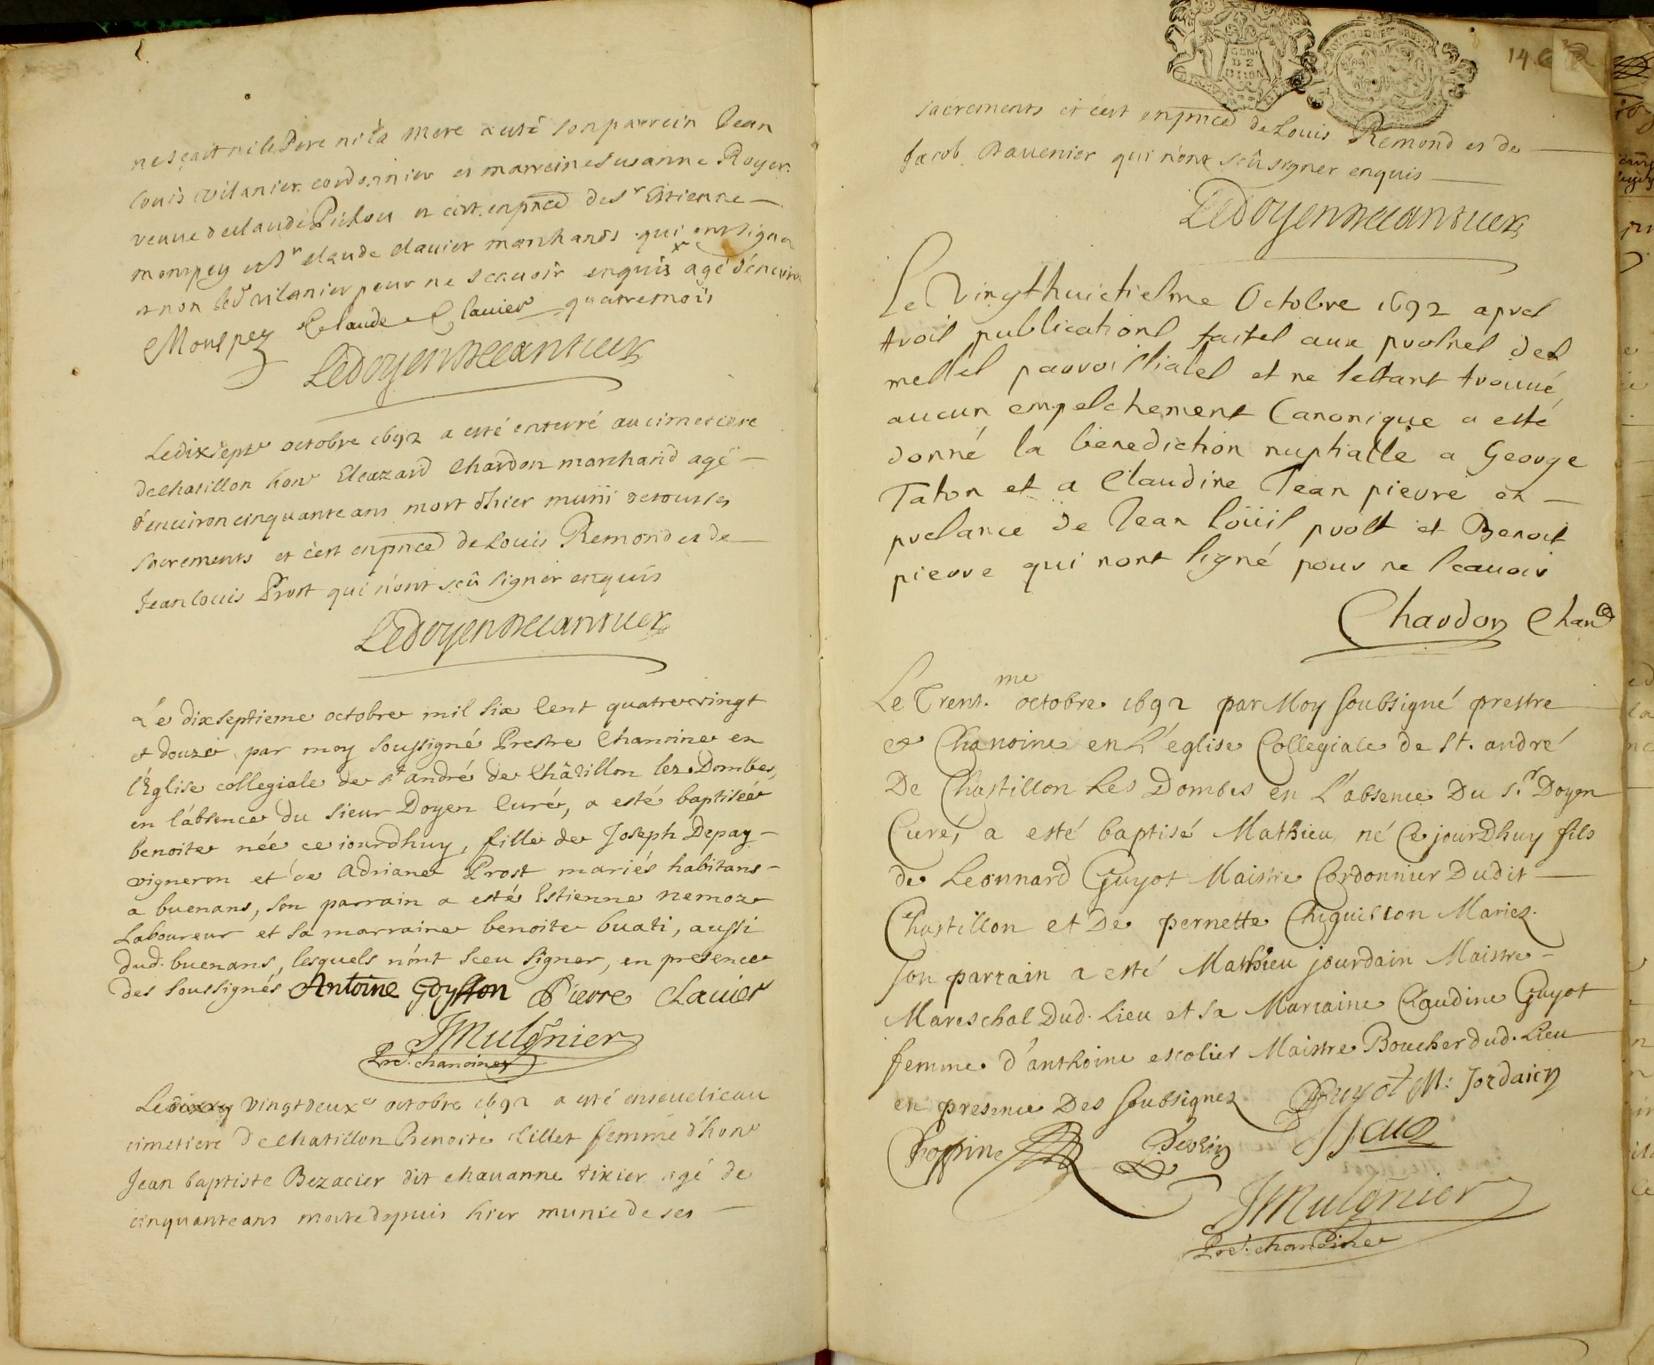 ne sçait ni le Pere ni la Mere a esté son parrein Jean
Louis Vilanier cordonnier et marreine Susanne Royer
veuve de Claude Pichou et c'est en pnce de Sr Estienne
Monspey et Sr Claude Clavier marchands qui ont signé
et non led Vilanier pour ne scavoir enquis agé d'environ
Monspey Claude Clavier quatre mois
Ledoyen
Le dixsept octobre 1692 a esté enterré au cimetiere
de Chatillon hon Eleazard Chardon marchand agé
d'environ cinquante ans mort d'hier muni de tous ses
sacrements et c'est en pnce de Louis Remond et de
Jean Louis Prost qui n'ont sçû signer enquis
Ledoyen
Le dix septieme octobre mil six Cent quatre vingt
et douze par moy soussigné Prestre Chanoine en
l'Eglise collegiale de st andré de Châtillon lez Dombes,
en l'absence du sieur Doyen Curé, a esté baptisée
benoite née ce iourdhuy, fille de Joseph Depay
vigneron et de Adriane Prost mariés habitans
a buenans, son parrain a esté Estienne nemoz
Laboureur et sa marraine benoite buati, aussi
dud. buenans, lesquels n'ont sceu signer, en presence
des soussignés Antoine Goyffon Pierre Clavier
JMulonier
Pre. chanoine
Le vingtdeuxe octobre 1692 a esté enseveli eau
cimetiere de Chatillon Benoite Lillet femme d'hon
Jean baptiste Bezacier dit chavanne tixier agé de
cinquante ans morte depuis hier munie de ses
146
sacrements et c'est en pnce de Louis Remond et de
Jacob Davenier qui n'ont sçû signer enquis
Ledoyen
Le Vingthuictiesme Octobre 1692 apres
trois publications faites aux prosnes des
messes parroissiales et ne s'estant trouvé
aucun empeschement Canonique a esté
donné la benediction nuptialle a George
Taton et a Claudine Jean pierre en
presance de Jean Loüis prost et Benoit
pierre qui nont signé pour ne scavoir
Chardon Chane
Le Trent.me octobre 1692 par Moy soubsigné prestre
et Chanoine en L'eglise Collegiale de St. andré
De Chastillon Les Dombes en L'absence Du Sr Doyen
Curé, a esté baptisé Mathieu né Ce jourDhuy fils
de Leonnard Guyot Maistre Cordonnier Dudit
Chastillon et De pernette Chiquilton Mariez.
Son parrain a esté Mathieu jourdain Maistre
Mareschal Dud. Lieu et sa Marraine Claudine Guyot
femme d'anthoine escolier Maistre Boucher dud. Lieu
en presence Des soubsignez Guyot M: Jordain
JMulonier
Pre. chanoine